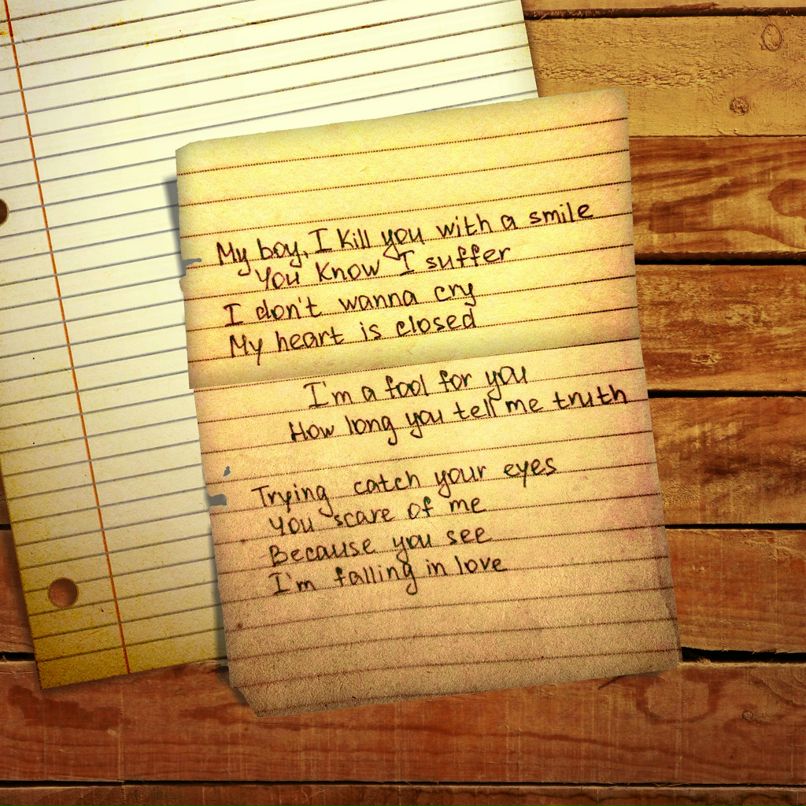 My boy, I kill you with a smile
You know I suffer
I don't wanna cry
My heart is closed
I'm a fool for you
How long you tell me truth
Trying catch your eyes
You scare of me
Because you see
I'm falling in love